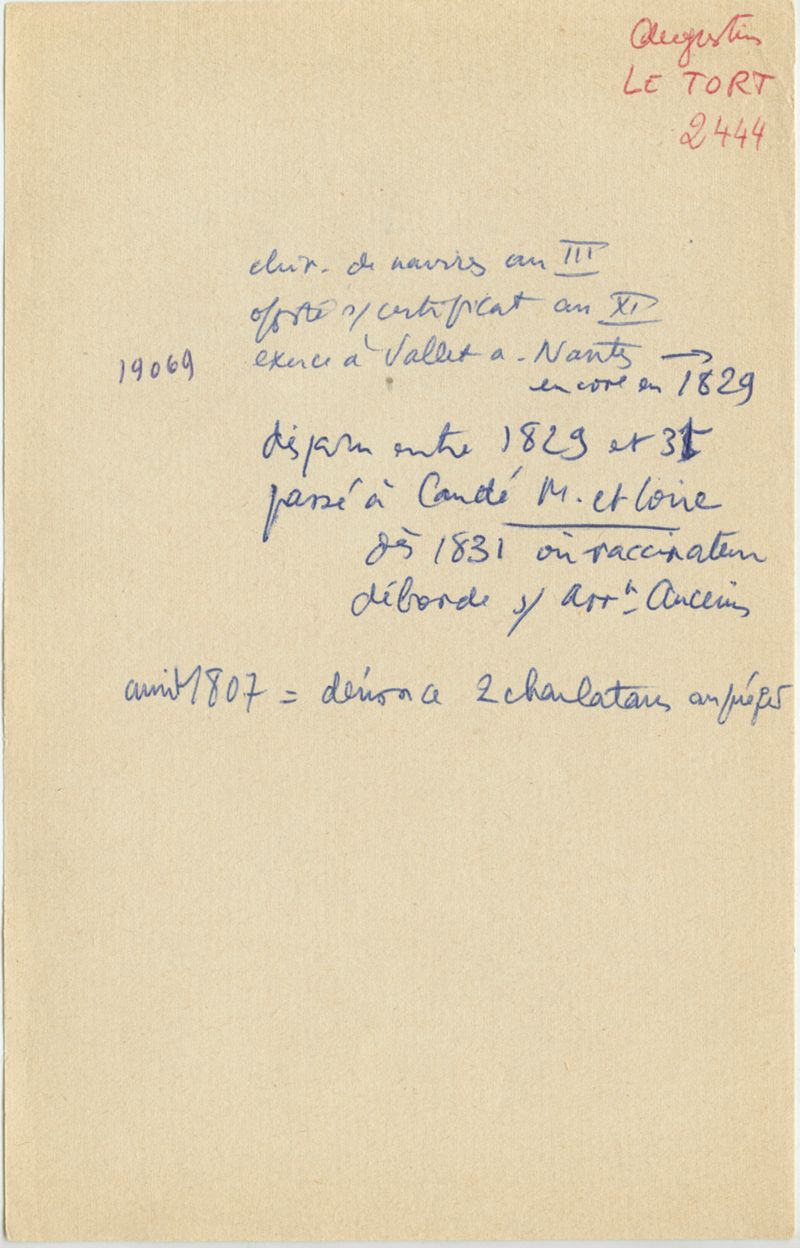 Augustin
LE TORT
2444
chir. de navires an III
s/ certificat an XI
19069 exerce à Vallet a. Nantes →
encore en 1829
disparu entre 1829 et 31
passé à Candé M. et Loire
dès 1831 où vaccinateur
déborde s/ Arr^t Ancenis
1807 = dénonce 2 charlatans au préfet